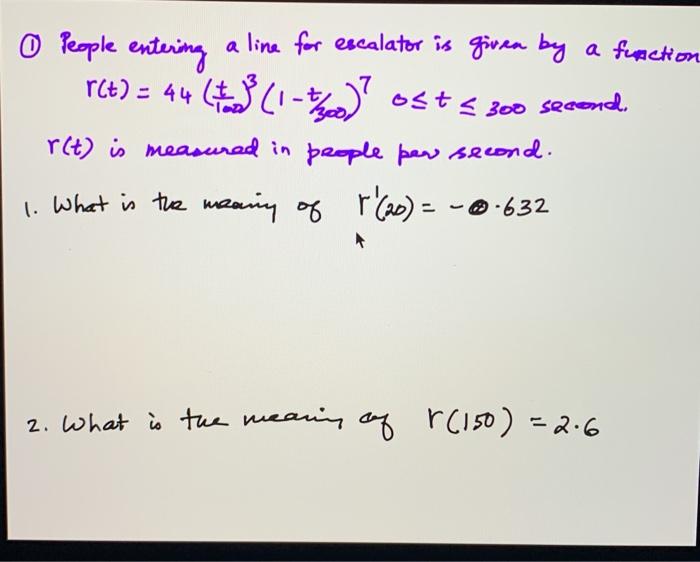 ① People entering a line for escalator is given by a function
r(t) = 44 (t/100)³ (1 - t/300)⁷ 0 ≤ t ≤ 300 second.
r(t) is measured in people per second.
1. What is the meaning of r'(20) = -0.632
2. What is the meaning of r(150) = 2.6